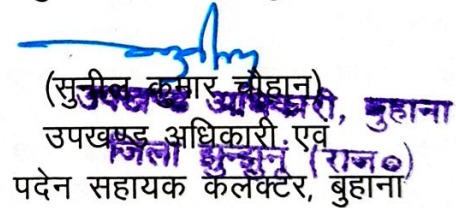 (सुनील कुमार चौहान)
उपखण्ड अधिकारी, बुहाना
उपखण्ड अधिकारी एवं
जिला झुन्झुनूं (राज०)
पदेन सहायक कलेक्टर, बुहाना